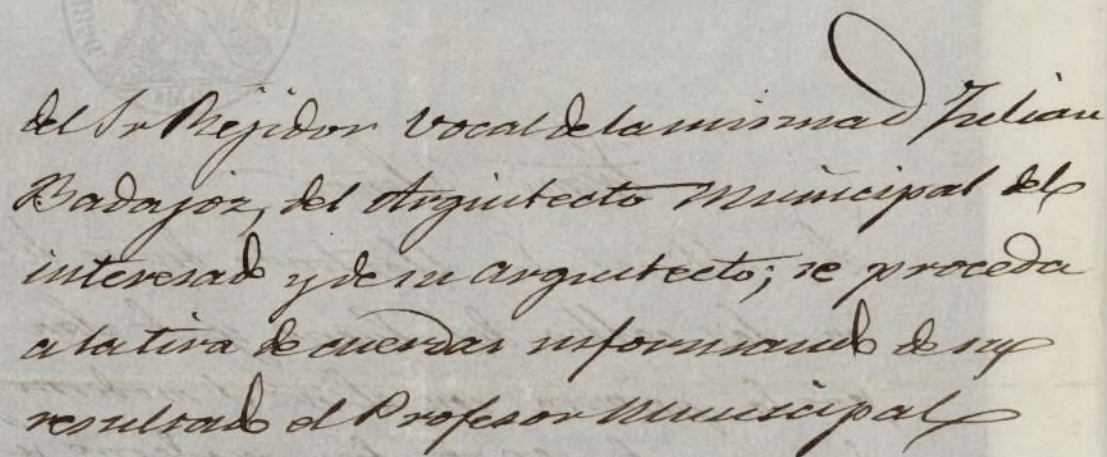 del Sr Rejidor Vocal de la misma D Julian
Badajoz, del Arquitecto Municipal del
interesado y de su arquitecto; se proceda
a la tira de cuerdas informando de su
resultado el Profesor Municipal